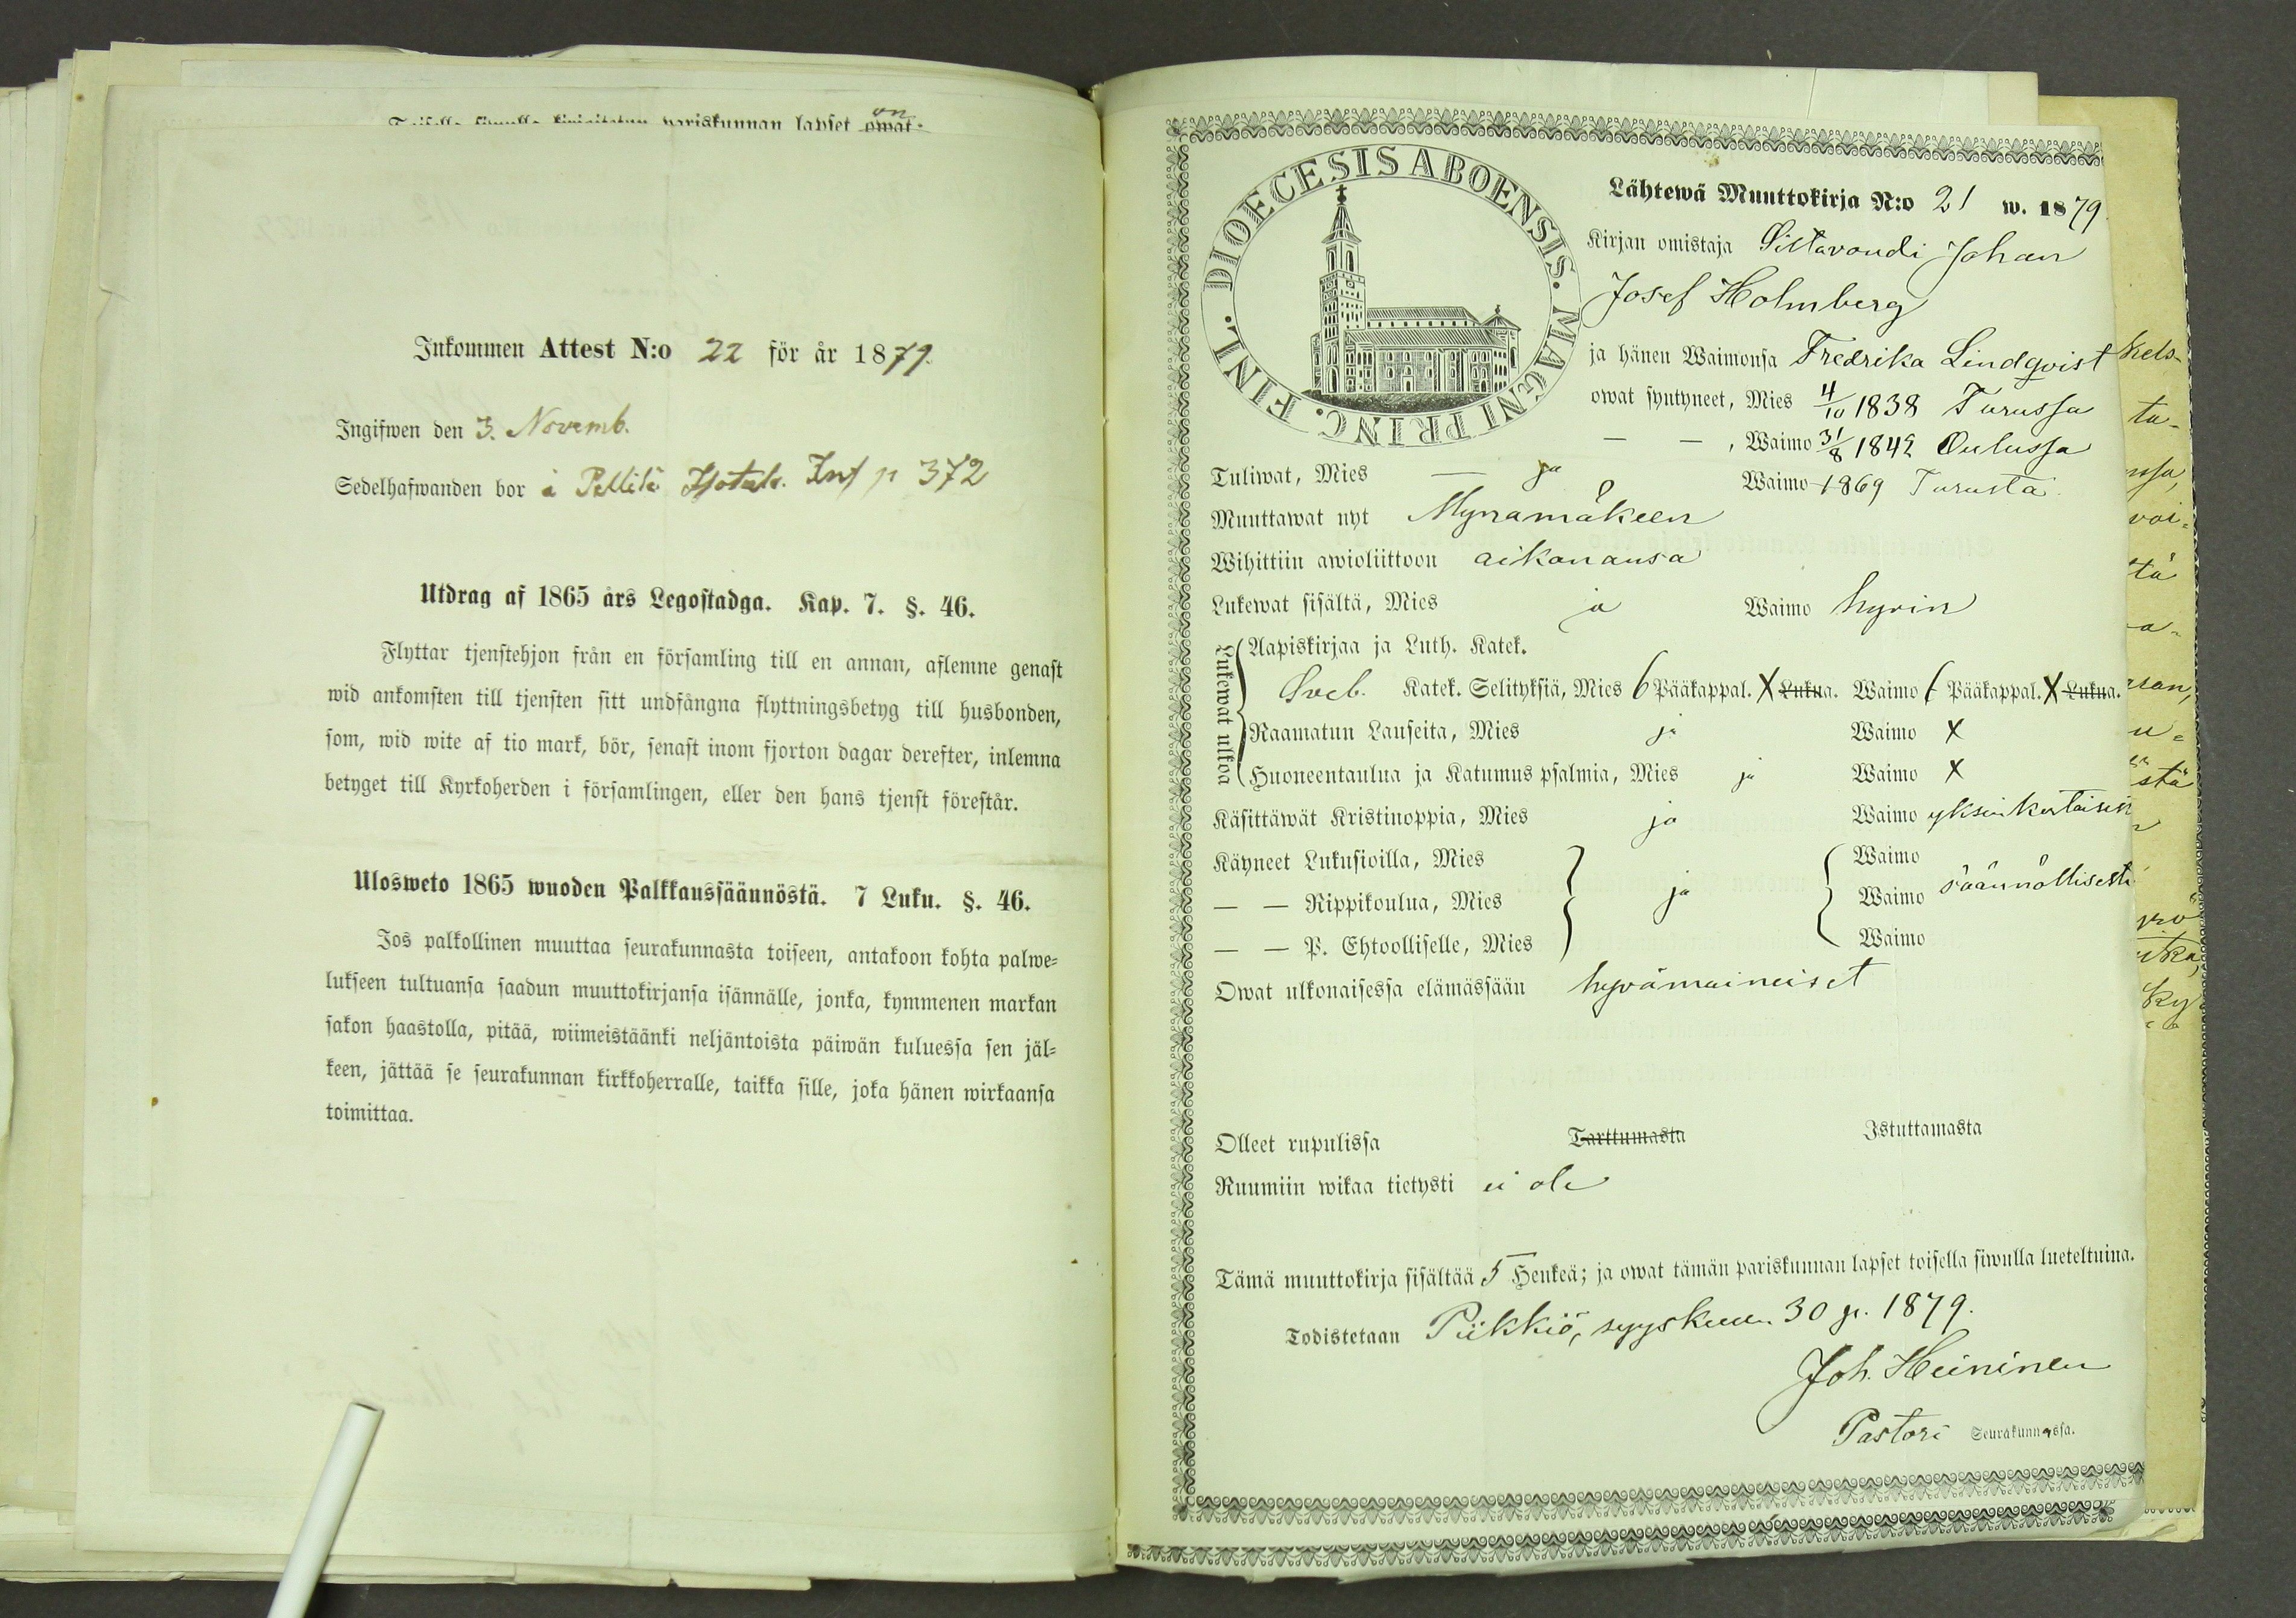 pariskunnan lapset owat:
on
Inkommen Attest N:o 22 för år 1879.
Ingifwen den 3. Novemb.
Sedelhafwanden bor i Pellilä p 372
Utdrag af 1865 års Legostadga. Kap. 7. §. 46.
Flyttar tjenstehjon från en församling till en annan, aflemne genast
wid ankomsten till tjensten sitt undfångna flyttningsbetyg till husbonden,
som, wid wite af tio mark, bör, senast inom fjorton dagar derefter, inlemna
betyget till Kyrkoherden i församlingen, eller den hans tjenst förestår.
Ulosweto 1865 wuoden Palkkaussäännöstä. 7 Luku. §. 46.
Jos palkollinen muuttaa seurakunnasta toiseen, antakoon kohta palwe-
lukseen tultuansa saadun muuttokirjansa isännälle, jonka, kymmenen markan
sakon haastolla, pitää, wiimeistäänki neljäntoista päiwän kuluessa sen jäl-
keen, jättää se seurakunnan kirkkoherralle, taikka sille, joka hänen wirkaansa
toimittaa.
DIOECESIS ABOENSIS. MAGNI PRINC. FINL.
Lähtewä Muuttokirja N:o 21 w. 1879.
Kirjan omistaja Siltavoudi Johan
Josef Holmberg
ja hänen Waimonsa Fredrika Lindqvist
owat syntyneet, Mies 4/10 1838 Turussa
— — , Waimo 31/8 1842 Oulussa
Tuliwat, Mies — ja Waimo 1869 Turusta
Muuttawat nyt Mynämäkeen
Wihittiin awioliittoon aikanansa
Lukewat sisältä, Mies ja Waimo hyvin
Lukewat ulkoa
Aapiskirjaa ja Luth. Katek.
Sveb. Katek. Selityksiä, Mies 6 Pääkappal. X Lukua. Waimo 6 Pääkappal. X Lukua.
Raamatun Lauseita, Mies ja Waimo X
Huoneentaulua ja Katumus psalmia, Mies ja Waimo X
Käsittäwät Kristinoppia, Mies ja Waimo yksinkertaisesti
Käyneet Lukusioilla, Mies Waimo
— — Rippikoulua, Mies ja Waimo säännöllisesti
— — P. Ehtoolliselle, Mies Waimo
Owat ulkonaisessa elämässään hyvämaineiset
Olleet rupulissa Tarttumasta Istuttamasta
Ruumiin wikaa tietysti ei ole
Tämä muuttokirja sisältää 5 Henkeä; ja owat tämän pariskunnan lapset toisella siwulla lueteltuina.
Todistetaan Piikkiö, syyskuun 30 p. 1879.
Joh. Heininen
Pastori Seurakunnassa.